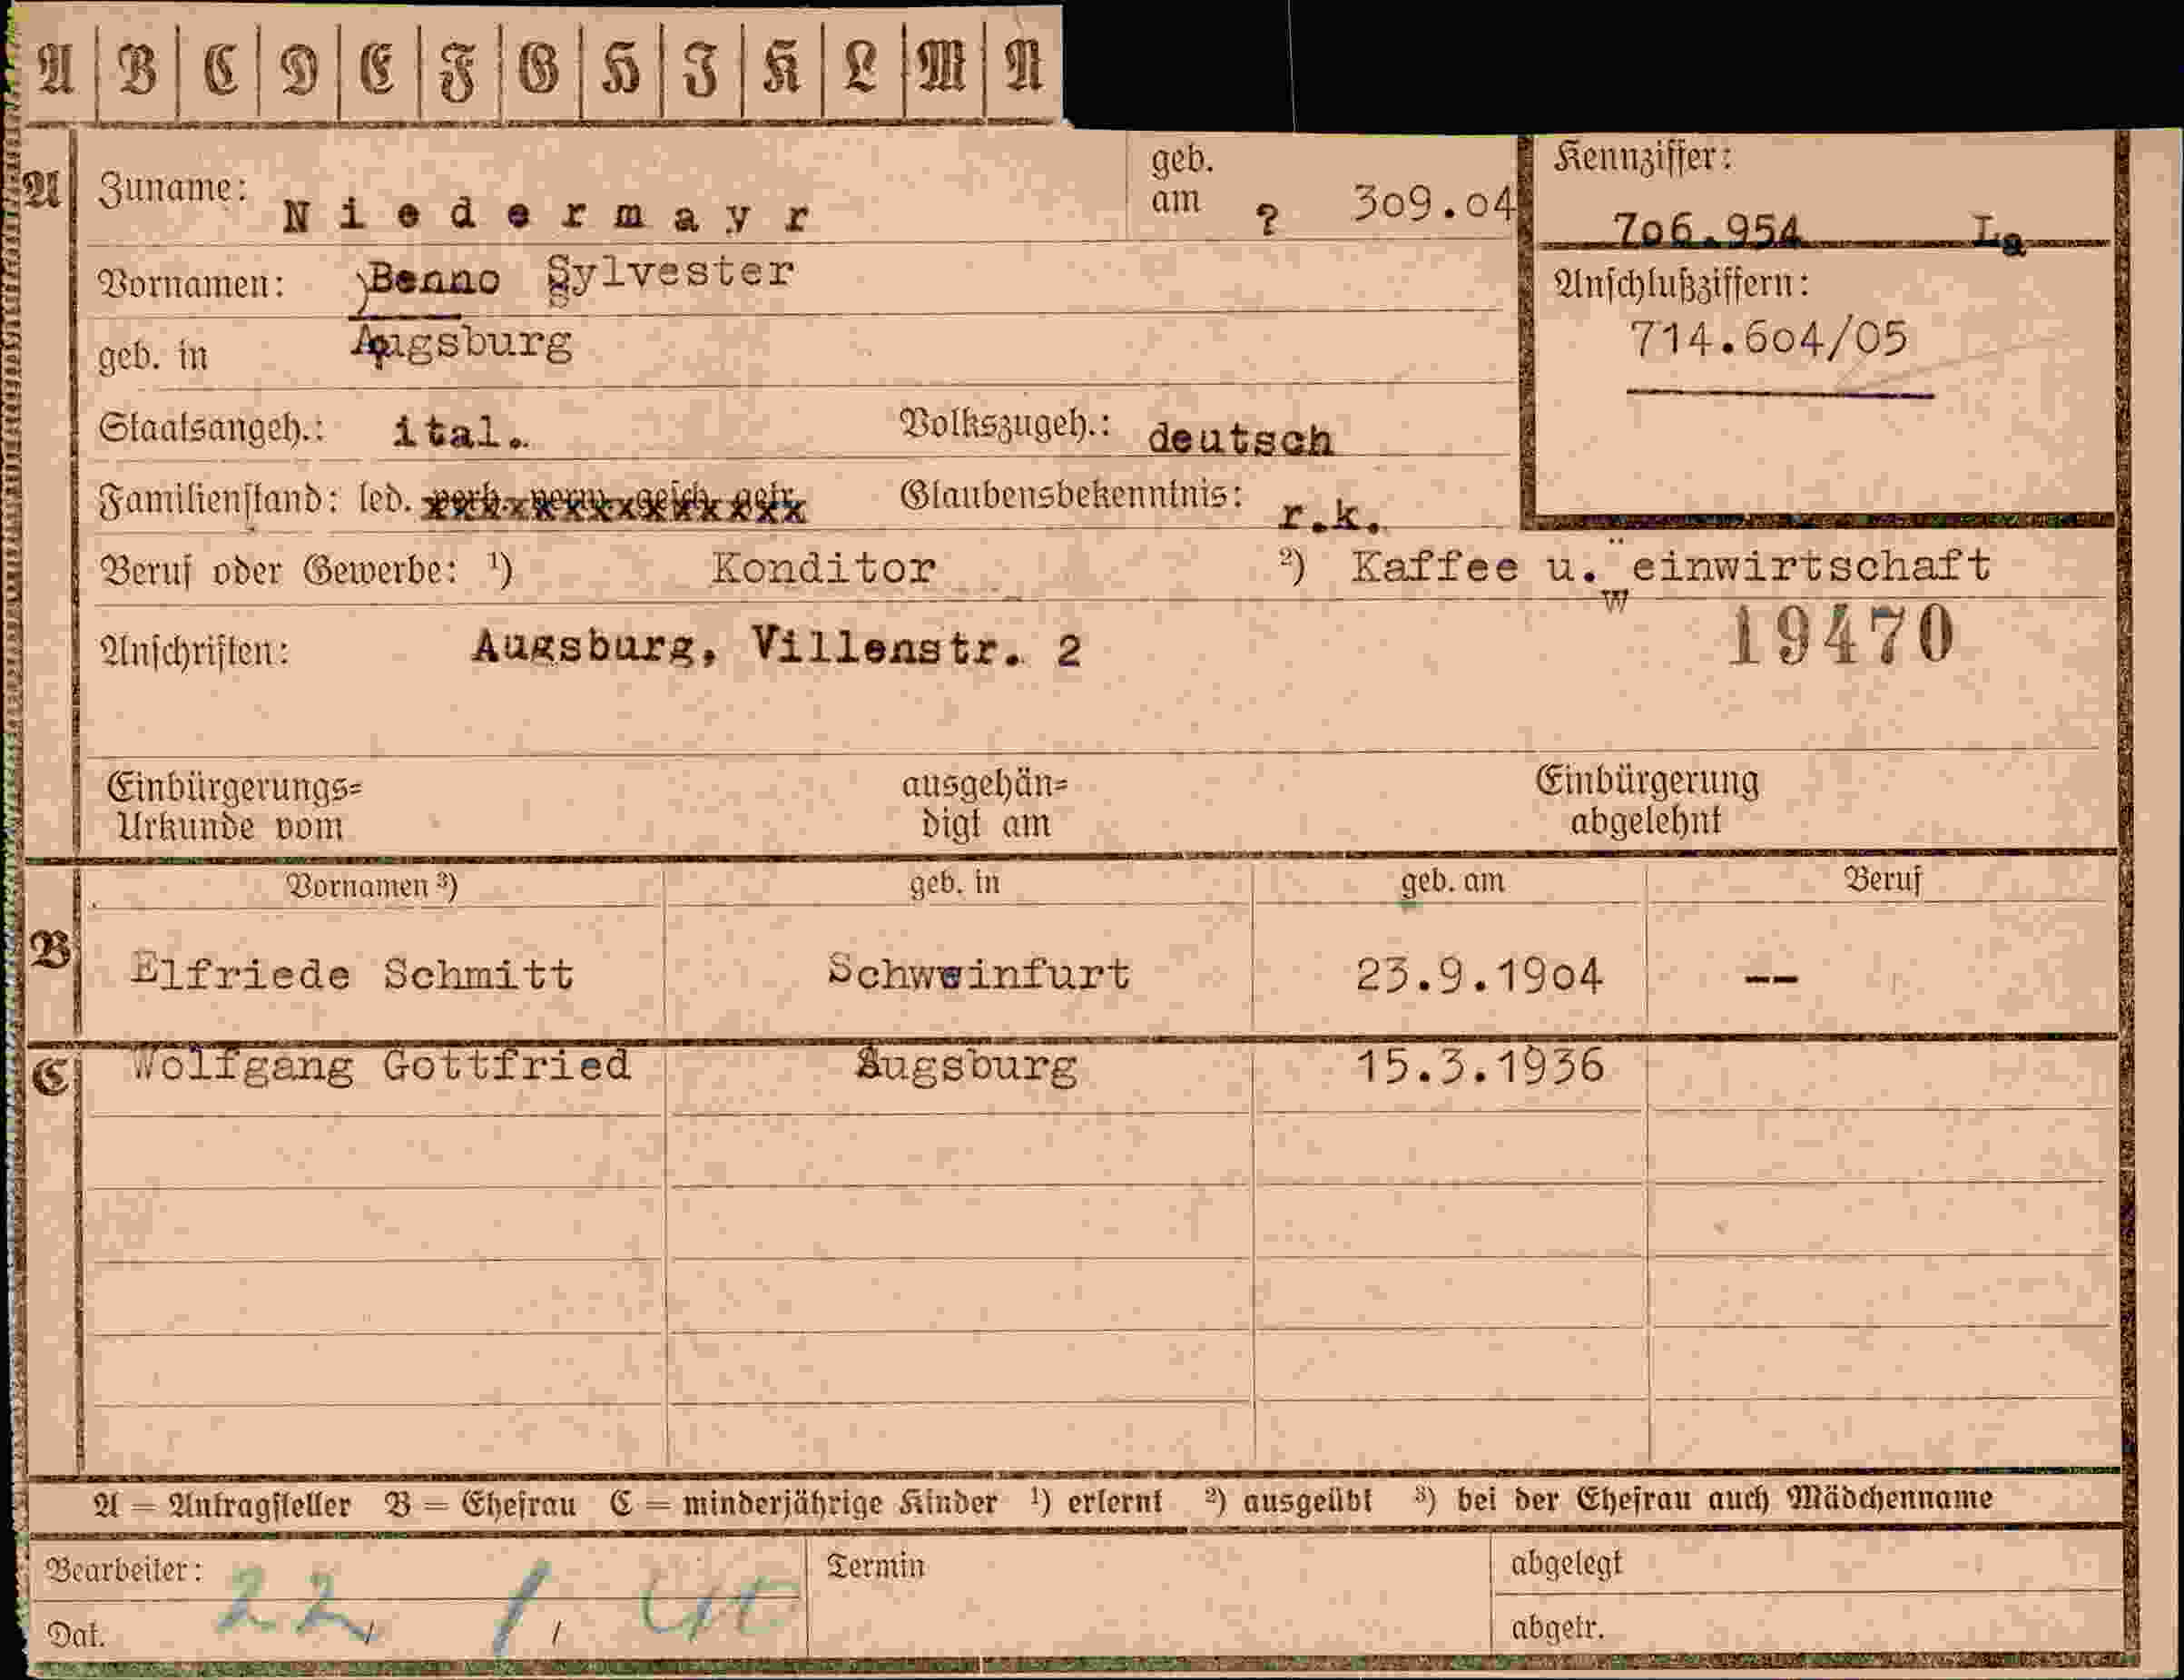 A B C D E F G H I K L M N
A
Zuname: Niedermayr
geb. am ? 309.04
Kennziffer:
706.954 La
Vornamen: Benno Sylvester
Anschlußziffern:
714.604/05
geb. in Augsburg
Staatsangeh.: ital. Volkszugeh.: deutsch
Familienstand: led. verh. verw. gesch. getr. Glaubensbekenntnis: r.k.
Beruf oder Gewerbe: ¹) Konditor ²) Kaffee u. weinwirtschaft
19470
Anschriften: Augsburg, Villenstr. 2
Einbürgerungs= ausgehän= Einbürgerung
Urkunde vom digt am abgelehnt
Vornamen ³) geb. in geb. am Beruf
B Elfriede Schmitt Schweinfurt 23.9.1904 --
C Wolfgang Gottfried Augsburg 15.3.1936
A = Antragsteller B = Ehefrau C = minderjährige Kinder ¹) erlernt ²) ausgeübt ³) bei der Ehefrau auch Mädchenname
Bearbeiter: Termin abgelegt
Dat. 22/ 1/ 40 abgetr.